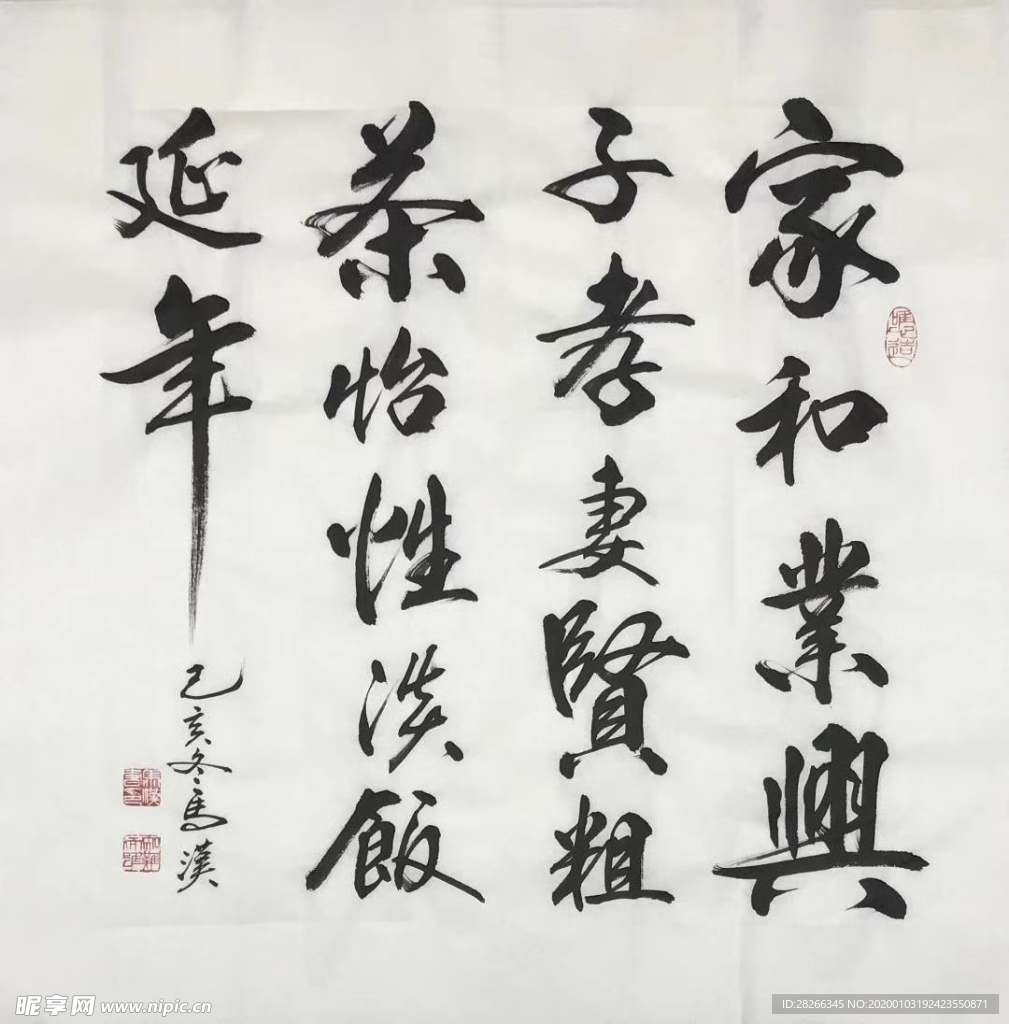 家和業興
子孝妻賢粗
茶怡性淡飯
延年
己亥冬馬漢
昵享网 www.nipic.cn
ID:28266345 NO:20200103192423550871